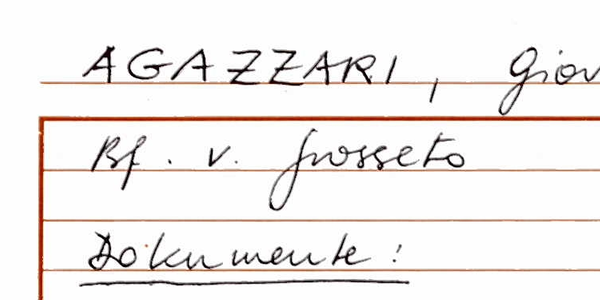 AGAZZARI, Giov
Bf. v. Grosseto
Dokumente: